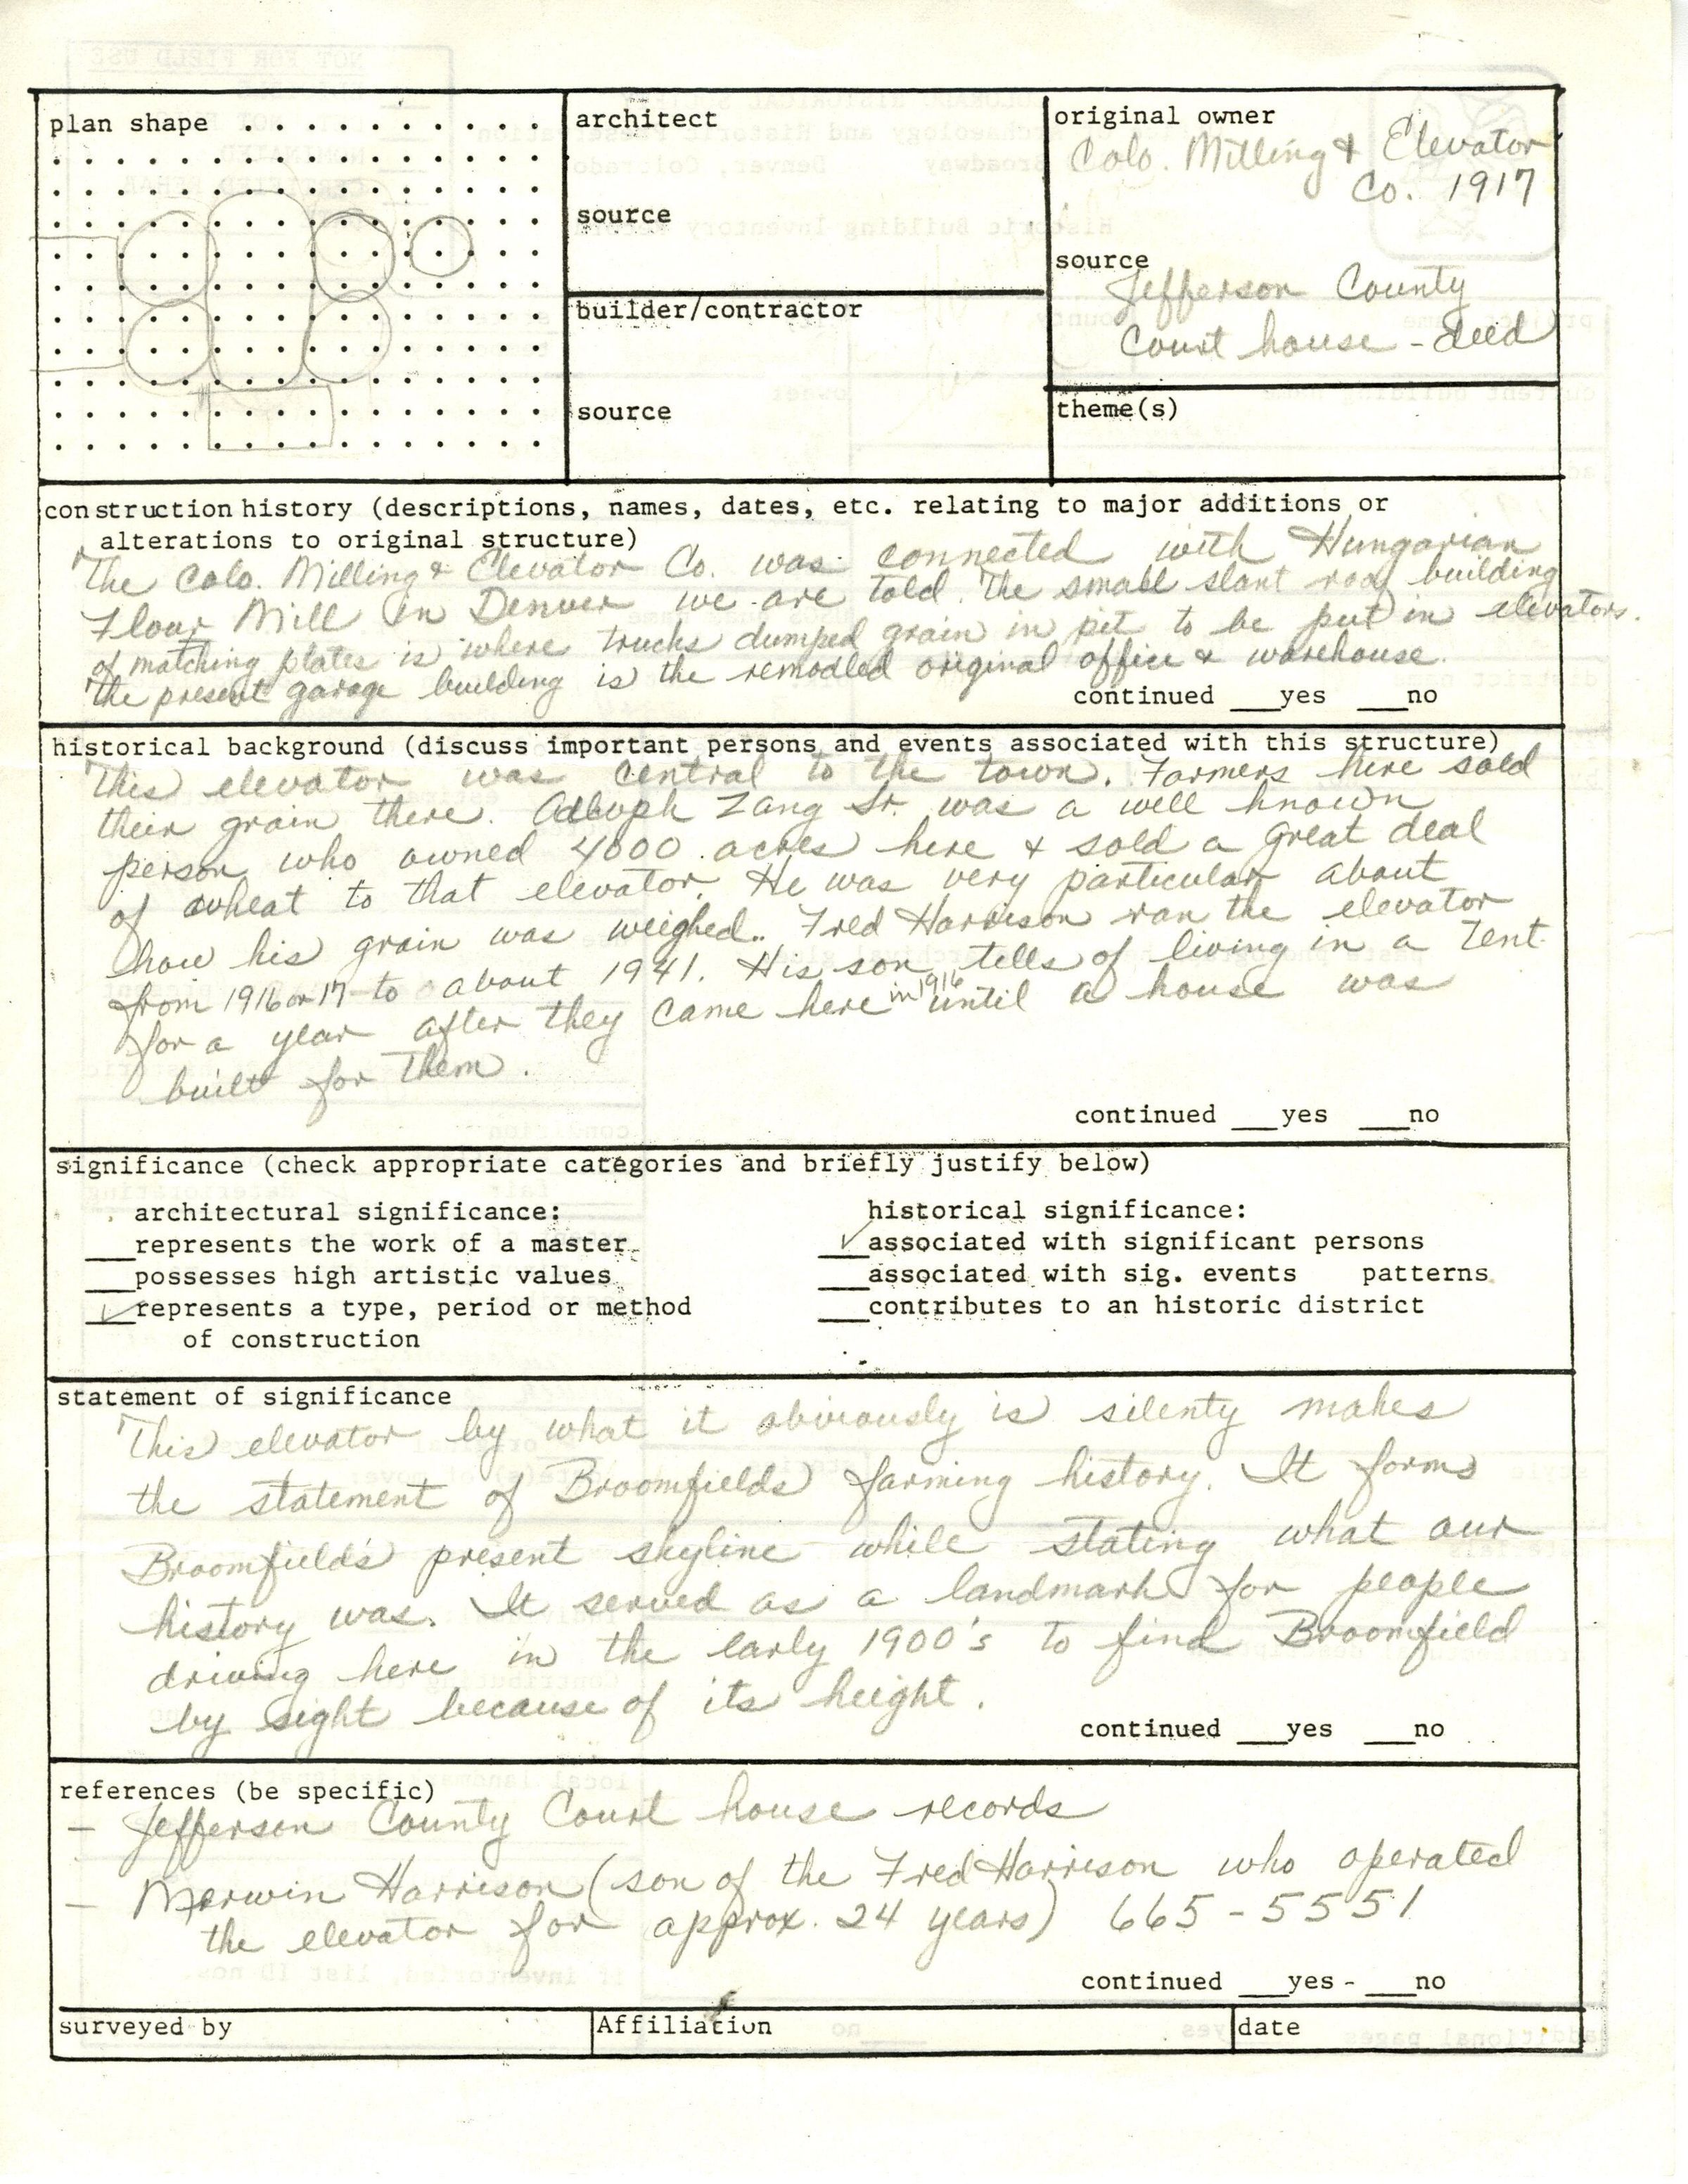 plan shape
architect
source
builder/contractor
source
original owner
Colo. Milling & Elevator
Co. 1917
source
Jefferson County
Court house - deed
theme(s)
construction history (descriptions, names, dates, etc. relating to major additions or
alterations to original structure)
The Colo. Milling & Elevator Co. was connected with Hungarian
Flour Mill in Denver we are told. The small slant roof building
of matching plates is where trucks dumped grain in pit to be put in elevators.
The present garage building is the remodled original office & warehouse.
continued ___yes ___no
historical background (discuss important persons and events associated with this structure)
This elevator was central to the town. Farmers here sold
their grain there. Adloph Zang Sr. was a well known
person who owned 4000 acres here & sold a great deal
of wheat to that elevator. He was very particular about
how his grain was weighed. Fred Harrison ran the elevator
from 1916 or 17 to about 1941. His son tells of living in a tent
for a year after they came here in 1916 until a house was
built for them.
continued ___yes ___no
significance (check appropriate categories and briefly justify below)
architectural significance:
___represents the work of a master
___possesses high artistic values
_✓_represents a type, period or method
of construction
historical significance:
_✓_associated with significant persons
___associated with sig. events patterns
___contributes to an historic district
statement of significance
This elevator by what it obviously is silenty makes
the statement of Broomfields farming history. It forms
Broomfield's present skyline while stating what our
history was. It served as a landmark for people
driving here in the early 1900's to find Broomfield
by sight because of its height.
continued ___yes ___no
references (be specific)
- Jefferson County Court house records
- Merwin Harrison (son of the Fred Harrison who operated
the elevator for approx. 24 years) 665-5551
continued ___yes - ___no
surveyed by
Affiliation
date